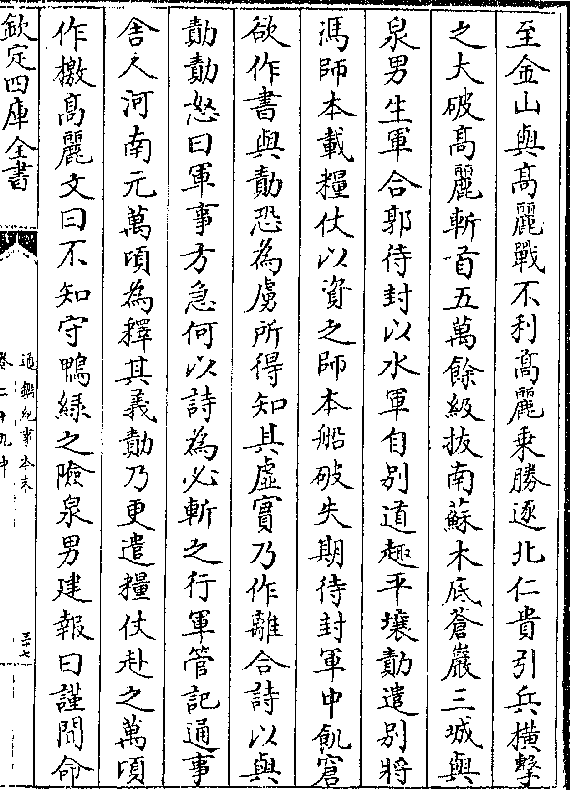 至金山與髙麗戰不利髙麗乗勝逐北仁貴引兵橫擊
之大破髙麗斬首五萬餘級拔南蘇木底蒼巖三城與
泉男生軍合郭待封以水軍自别道趣平壤勣遣别將
馮師本載糧仗以資之師本船破失期待封軍中飢窘
欲作書與勣恐為虜所得知其虛實乃作離合詩以與
勣勣怒曰軍事方急何以詩為必斬之行軍管記通事
舍人河南元萬頃為釋其義勣乃更遣糧仗赴之萬頃
作檄髙麗文曰不知守鴨緑之險泉男建報曰謹聞命
欽定四庫全書
通鑑紀事本末
卷二十九中
三七